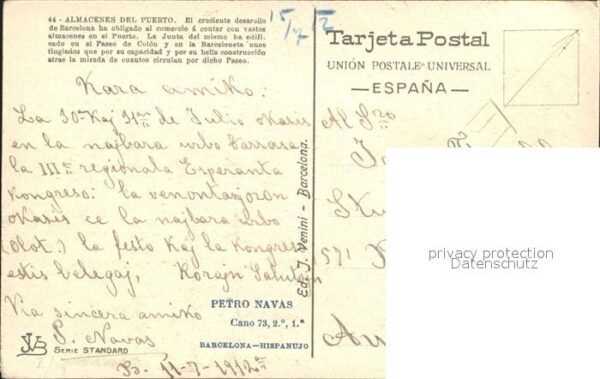 44 - ALMACENES DEL PUERTO. El creciente desarollo
de Barcelona ha obligado al comercio á contar con vastos
almacenes en el Puerto. La Junta del mismo ha edifi-
cado en el Paseo de Colón y en la Barceloneta unos
tinglados que por su capacidad y por su bella construcción
atrae la mirada de cuantos circulan por dicho Paseo.
Kara amiko:
La 30ª Kaj 31ª de Julio okazis
en la najbara urbo
la IIIª regionala Esperanta
Kongreso: la
okazis ĉe la najbara urbo
(Olot.) la festo Kaj la Kongreso
estis belegaj, Korajn Salutojn
Via sincera amiko
P. Navas
B. 11-7-1912
PETRO NAVAS
Cano 73, 2.º, 1.ª
BARCELONA-HISPANUJO
JVB
SERIE STANDARD
Ed. J. Venini - Barcelona.
15/7 12
Tarjeta Postal
UNIÓN POSTALE UNIVERSAL
—ESPAÑA—
Al Sro
1571
privacy protection
Datenschutz